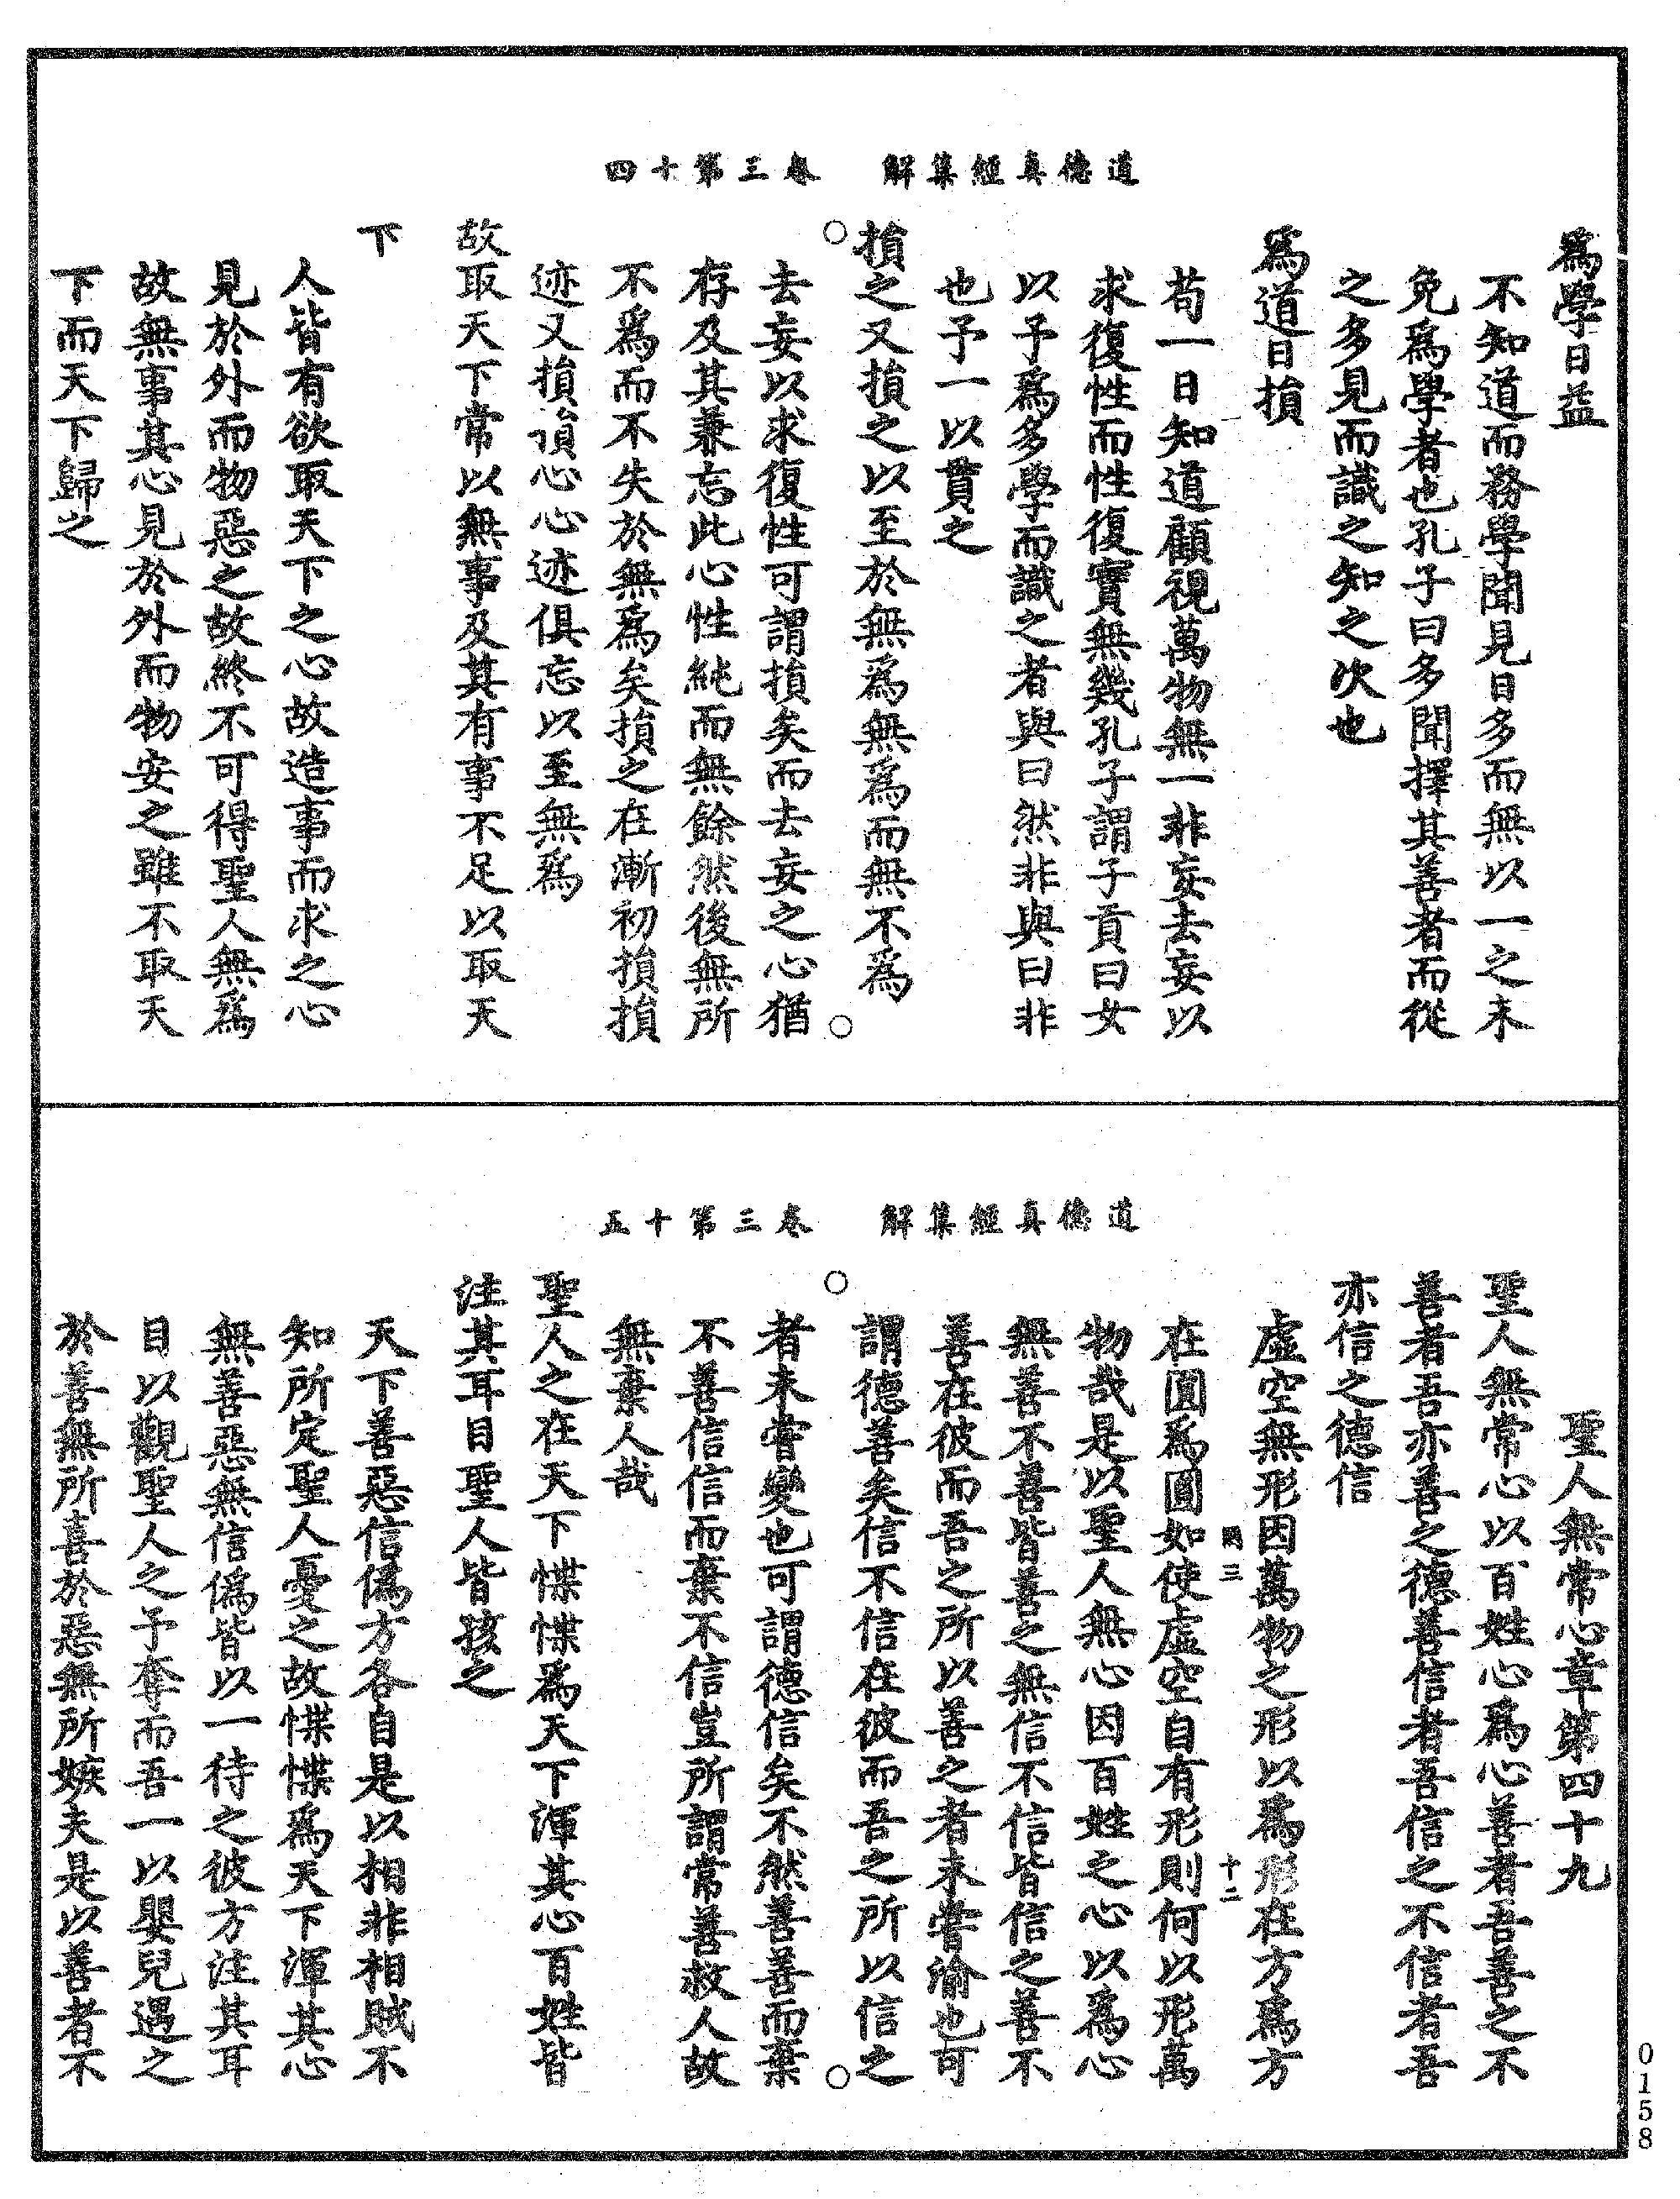 道德真經集解　卷三第十四
爲學日益
不知道而務學聞見日多而無以一之未
免爲學者也孔子曰多聞擇其善者而從
之多見而識之知之次也
爲道日損
苟一日知道顧視萬物無一非妄去妄以
求復性而性復實無幾孔子謂子貢曰女
以予爲多學而識之者與曰然非與曰非
也予一以貫之
損之又損之以至於無爲無爲而無不爲
去妄以求復性可謂損矣而去妄之心猶
存及其兼忘此心性純而無餘然後無所
不爲而不失於無爲矣損之在漸初損損
迹又損損心心迹俱忘以至無爲
故取天下常以無事及其有事不足以取天
下
人皆有欲取天下之心故造事而求之心
見於外而物惡之故終不可得聖人無爲
故無事其心見於外而物安之雖不取天
下而天下歸之
道德真經集解　卷三第十五
聖人無常心章第四十九
聖人無常心以百姓心爲心善者吾善之不
善者吾亦善之德善信者吾信之不信者吾
亦信之德信
虛空無形因萬物之形以爲形在方爲方
三　十二
在圓爲圓如使虛空自有形則何以形萬
物哉是以聖人無心因百姓之心以爲心
無善不善皆善之無信不信皆信之善不
善在彼而吾之所以善之者未嘗渝也可
謂德善矣信不信在彼而吾之所以信之
者未嘗變也可謂德信矣不然善善而棄
不善信信而棄不信豈所謂常善救人故
無棄人哉
聖人之在天下惵惵爲天下渾其心百姓皆
注其耳目聖人皆孩之
天下善惡信僞方各自是以相非相賊不
知所定聖人憂之故惵惵爲天下渾其心
無善惡無信僞皆以一待之彼方注其耳
目以觀聖人之予奪而吾一以嬰兒遇之
於善無所喜於惡無所嫉夫是以善者不
0158